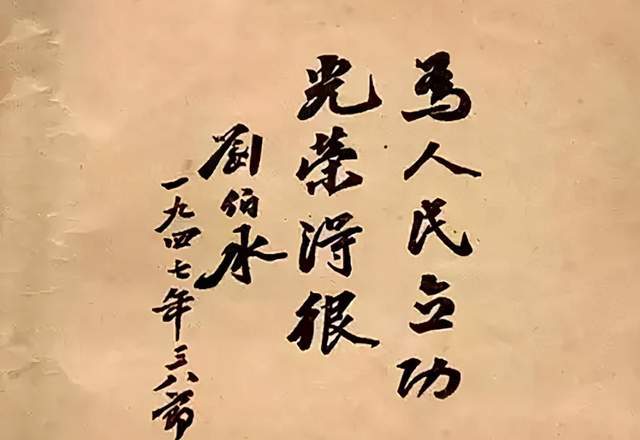 為人民立功
光荣得很
劉伯承
一九四七年三八節